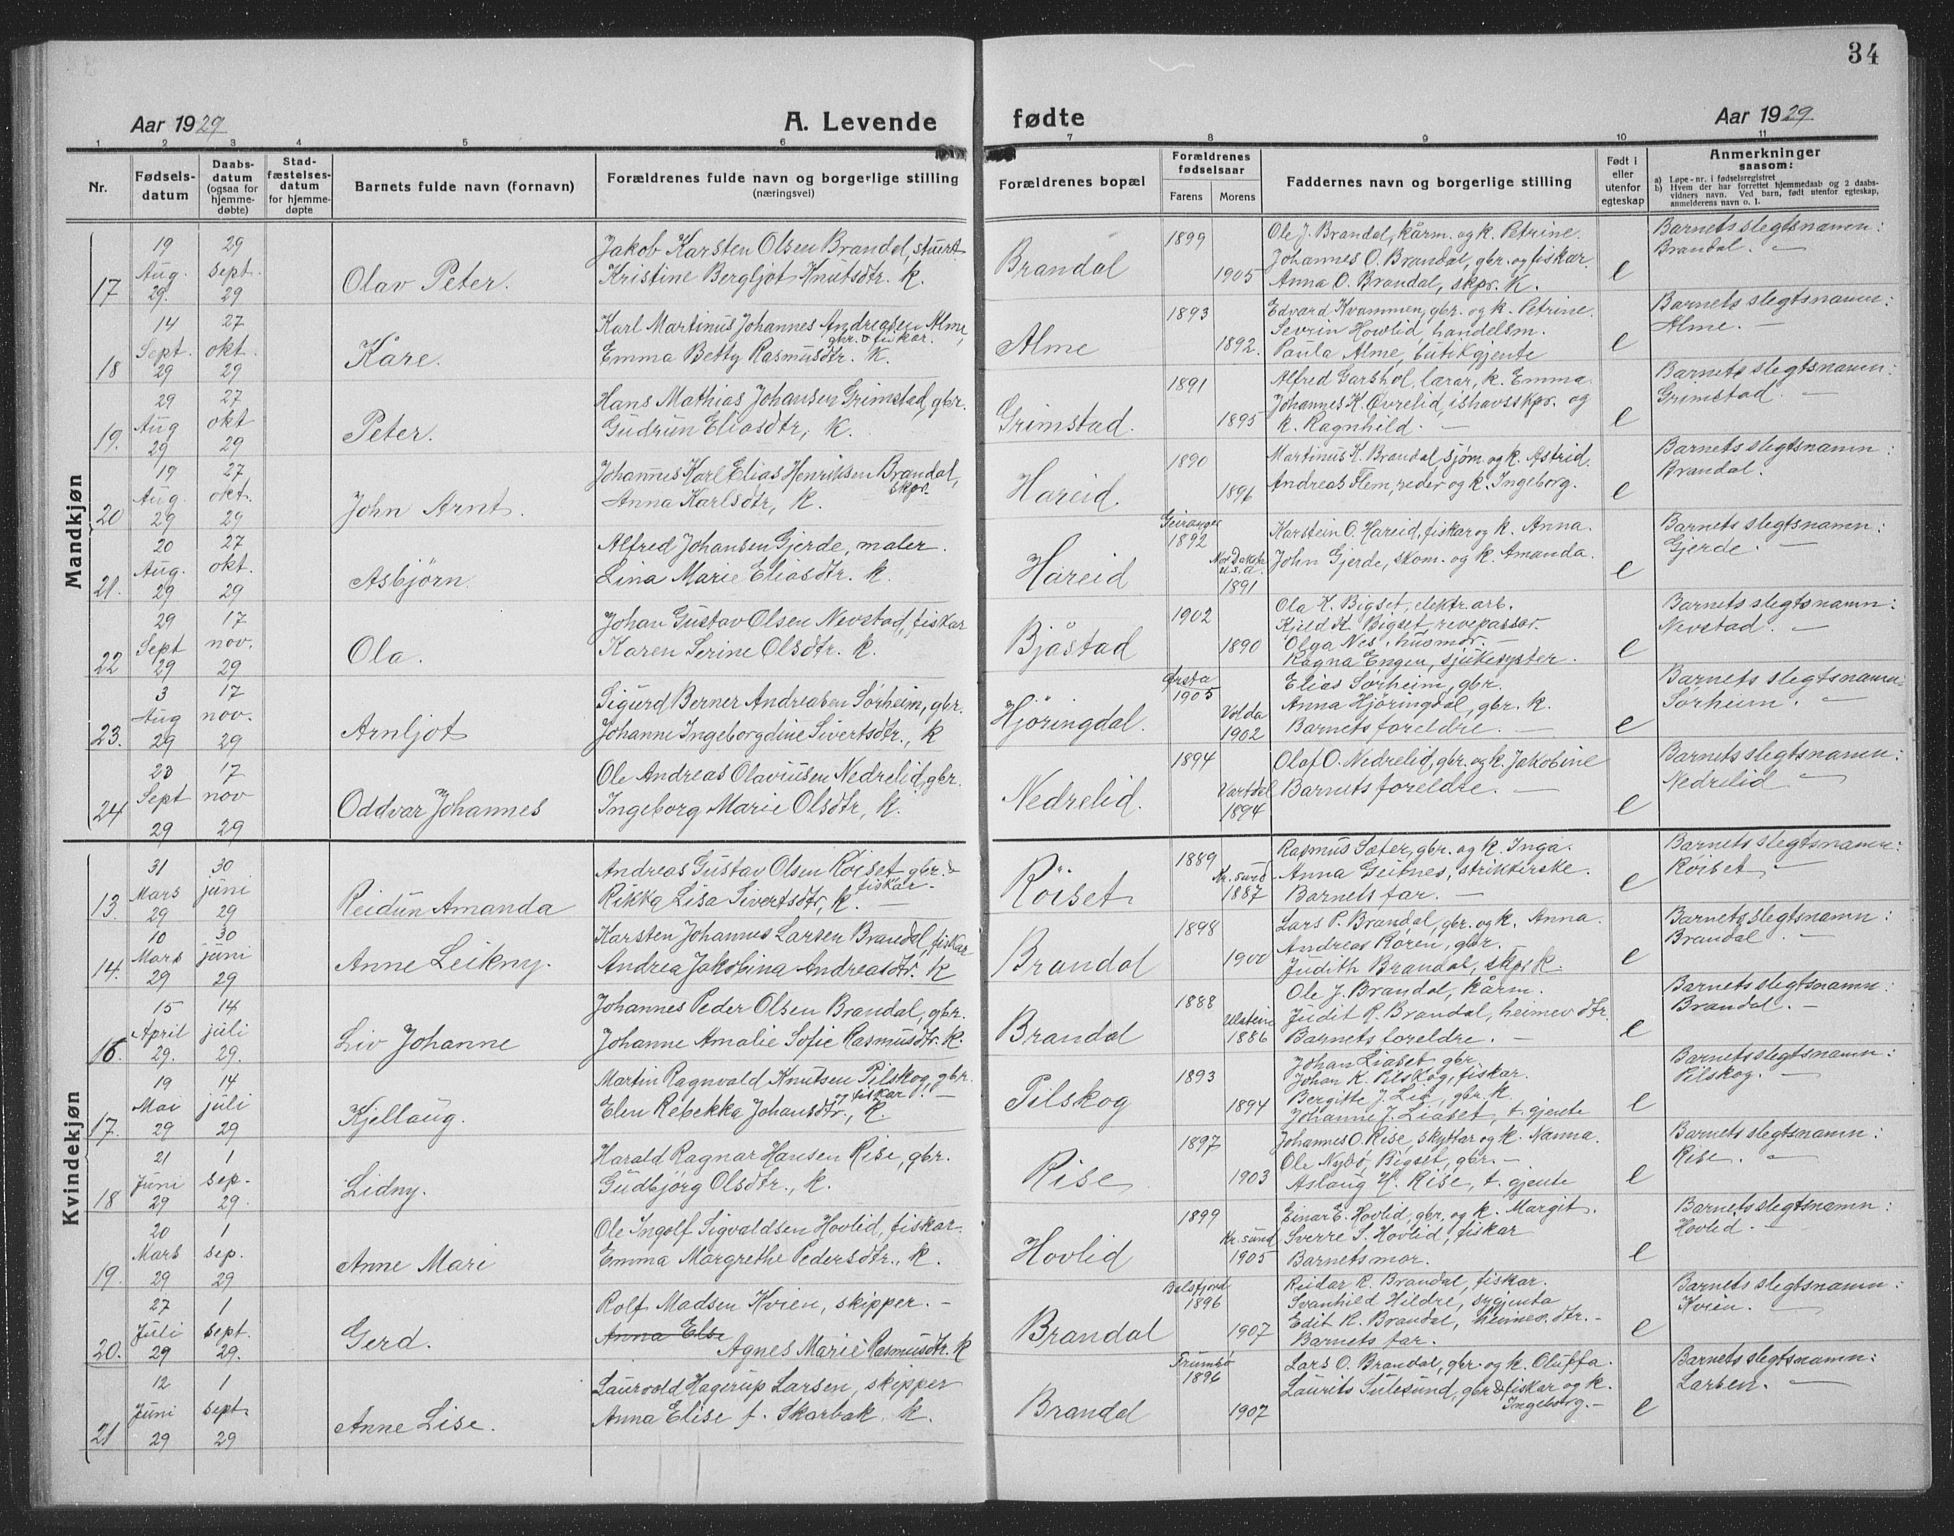 34
Aar 1929
A. Levende
fødte
Aar 1929
1 2 3 4 5 6 7 8 9 10 11
Nr.
Fødsels-
datum
Daabs-
datum
(ogsaa for
hjemme-
døbte)
Stad-
fæstelses-
datum
for hjemme-
døpte
Barnets fulde navn (fornavn)
Forældrenes fulde navn og borgerlige stilling
(næringsvei)
Forældrenes bopæl
Forældrenes
fødselsaar
Farens Morens
Faddernes navn og borgerlige stilling
Født i
eller
utenfor
egteskap
Anmerkninger
saasom:
a) Løpe-nr. i fødselsregistret
b) Hvem der har forrettet hjemmedaab og 2 daabs-
vidners navn. Ved barn, født utenfor egteskap,
anmelderens navn o. l.
Mandkjøn
17
19 Aug. 29.
29 sept. 29
Olav Peter.
Jakob Karsten Olsen Brandal, stuert
Kristine Bergljot Knutsdtr. k.
Brandal
1899
1905
Ole J. Brandal, kårm. og k. Petrine.
Johannes O. Brandal, gbr. og fiskar.
Anna O. Brandal, skpr. k.
e
Barnets slegtsnamn:
Brandal. —
18
14 Sept. 29
27 okt. 29
Kåre.
Karl Martinus Johannes Andreasen Alme,
gbr. o fiskar.
Emma Betty Rasmusdtr. k.
Alme
1893
1892.
Edvard Kvammen, gbr. og k. Petrine.
Sevrin Hovlid, handelsm.
Paula Alme, butikgjente
e
Barnets slegtsnamn:
Alme. —
19.
29 Aug 29
27 okt 29
Peter.
Hans Mathias Johansen Grimstad, gbr.
Gudrun Eliasdtr, k.
Grimstad.
1891
1895
Alfred Garshol, lærar, k. Emma.
Johannes K. Øvrelid, ishavsskpr. og
k. Ragnhild. —
e
Barnets slegtsnamn:
Grimstad. —
20
19 Aug. 29
27 okt. 29
John Arnt.
Johannes Karl Elias Henriksen Brandal,
skpr.
Anna Karlsdtr, k.
Hareid.
1890
1896
Martinus K. Brandal, sjøm. og k. Astrid.
Andreas Flem, reder og k. Ingeborg.
e
Barnets slegtsnamn
Brandal.
21.
20 Aug. 29
27 okt. 29
Asbjörn.
Alfred Johansen Gjerde, maler.
Lina Marie Eliasdtr. k.
Hareid
Geiranger
1892
Nor Dakota
u.s.a.
1891
Karstein O. Hareid, fiskar og k. Anna.
John Gjerde, skom. og k. Amanda.
e
Barnets slegtsnamn:
Gjerde. —
22
29 Sept 29
17 nov. 29
Ola.
Johan Gustav Olsen Nevstad, fiskar
Karen Serine Olsdtr. k.
Bjåstad
1902
1890
Ola K. Bigset, elektr. arb.
Kild K. Bigset, revepassar.
Olga Nes, husmdr. —
Ragna Engen, sjukesyster.
e
Barnets slegtsnamn:
Nevstad. —
23.
3 Aug 29
17 nov. 29
Arnljot
Sigurd Berner Andreasen Sørheim, gbr.
Johanne Ingeborgdine Sivertsdtr., k
Hjöringdal.
Ørsta
1905
Volda
1902
Elias Sørheim, gbr.
Anna Hjöringdal, gbr. k.
Barnets foreldre. —
e
Barnets slegtsnamn:
Sørheim. —
24
23 Sept 29
17 nov 29
Oddvar Johannes
Ole Andreas Olaviusen Nedrelid, gbr.
Ingeborg Marie Olsdtr, k.
Nedrelid.
1894
Vartdal
1894
Olaf O. Nedrelid, gbr. og k. Jakobine
Barnets foreldre. —
e
Barnets slegtsnamn:
Nedrelid —
Kvindekjøn
13.
31 Mars 29
30 juni 29
Reidun Amanda
Andreas Gustav Olsen Röiset gbr. &
fiskar.
Rikka Lisa Sivertsdtr, k. —
Röiset
1889
Kr. sund
1887
Rasmus Sæter, gbr. og k. Inga.
Anna Geitnes, strikkerske.
Barnets far. —
e
Barnets slegtsnamn:
Röiset —
14.
10 Mars 29
30 juni 29
Anne Leikny.
Karsten Johannes Larsen Brandal, fiskar
Andrea Jakobina Andreasdtr. k
Brandal
1898
1900
Lars P. Brandal, gbr. og k. Anna.
Andreas Røren, gbr.
Judith Brandal, skpr k.
e
Barnets slegtsnamn:
Brandal. —
16.
15 April 29.
14 juli 29.
Liv Johanne
Johannes Peder Olsen Brandal, gbr.
Johanne Amalie Sofie Rasmusdtr. k.
Brandal
1888
Ulstein
1886
Ole J. Brandal, kårm.
Judit R. Brandal, heimev. dtr.
Barnets foreldre. —
e
Barnets slegtsnamn:
Brandal. —
17.
19 Mai 29
14 juli 29
Kjellaug.
Martin Ragnvald Knutsen Pilskog, gbr.
og fiskar. —
Elen Rebekka Johansdtr, k.
Pilskog
1893
1894
Johan Liaset gbr.
Johan K. Pilskog, fiskar.
Bergitte J. Lid, gbr. k
Johanne J. Liaset, t. gjente
e
Barnets slegtsnamn:
Pilskog. —
18
21 Juni 29
1 sep. 29.
Lidny.
Harald Ragnar Hansen Rise, gbr.
Gudbjörg Olsdtr., k.
Rise
1897
1903
Johannes O. Rise, skyttar og k. Nanna.
Ole Nybø, Bigset, gbr. —
Aslaug H. Rise, t. gjente
e
Barnets slegtsnamn:
Rise. —
19.
20 Mars 29
1 sep. 29
Anne Mari
Ole Ingolf Sigvaldsen Hovlid, fiskar.
Emma Margrethe Pedersdtr., k.
Hovlid
1899
Kr. sund
1905
Einar E. Hovlid, gbr. og k. Margit.
Sverre S. Hovlid, fiskar
Barnets mor.
e
Barnets slegtsnamn:
Hovlid. —
20.
27 Juli 29
1 sept. 29.
Gerd.
Rolf Madsen Kvien, skipper. —
Anna Else
Agnes Marie Rasmusdtr. k
Brandal
Balsfjord
1896
1907
Reidar R. Brandal, fiskar.
Svanhild Hildre, sygjenta
Edit R. Brandal, heimev. dtr. —
Barnets far.
e
Barnets slegtsnamn:
Kvien. —
21
12 Juni 29
1 sept. 29
Anne Lise.
Laurvald Hagerup Larsen, skipper
Anna Elise f. Skarbak. k.
Brandal
Trumsø
1896
1907
Lars O. Brandal, gbr. og k. Oluffa.
Laurits Sulesund, gbr & fiskar og k.
Ingeborg. —
e
Barnets slegtsnamn:
Larsen. —